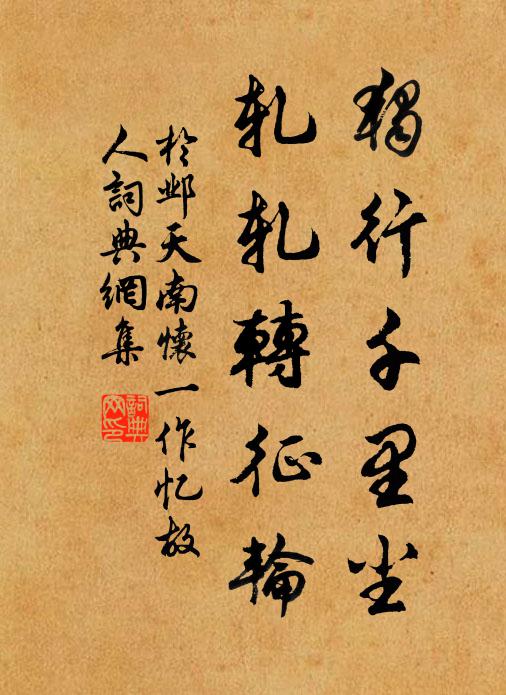 獨行千里尘
軋軋轉征輪
於邺天南懷一作忆故
人詞典網集
詞典
网印